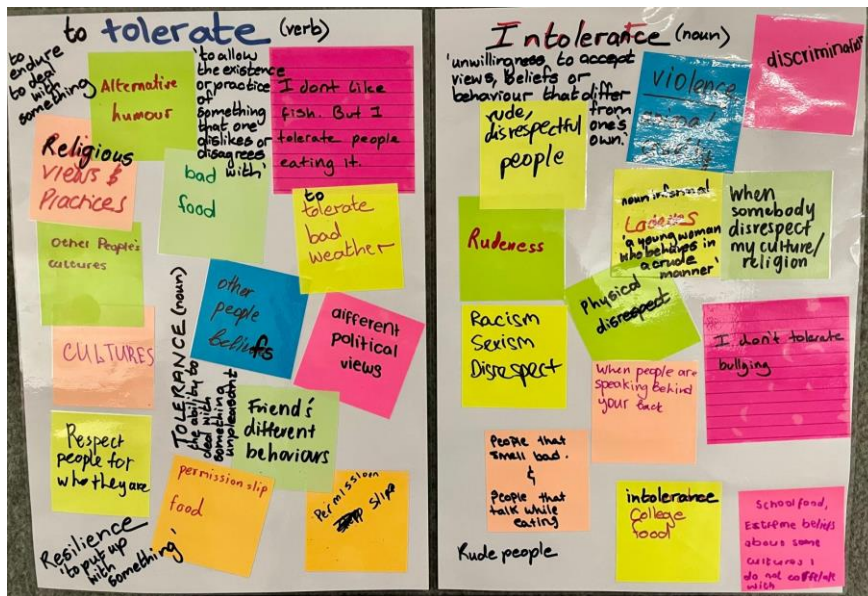 to tolerate (verb)
to
endure
to deal
with
something
Alternative
humour
'to allow
the existence
or practice
of
something
that one
dislikes or
disagrees
with'
I dont like
fish. But I
tolerate people
eating it.
Religious
views &
Practices
bad
food
to
tolerate
bad
weather
Other People's
cultures
other
people
Beliefs
different
political
views
CULTURES
TOLERANCE (noun)
the ability to
deal with
something
unpleasant
Friend's
different
behaviours
Respect
people for
who they are
permission slip
food
Permission
slip
Resilience
'to put up
with
something'
Intolerance (noun)
'unwillingness to accept
views, beliefs or
behaviour that differ
from
one's
own.'
violence
discrimination
rude,
disrespectful
people
noun informal
Ladettes
'a young woman
who behaves in
a crude
manner'
when
somebody
disrespect
my culture/
religion
Rudeness
Physical
disrespect
Racism
Sexism
Disrespect
When people are
speaking behind
your back
I don't tolerate
bullying
People that
smell bad.
&
People that
talk while
eating
intolerance
College
food
School food,
Extreme beliefs
about some
cultures i
do not
with
Rude people